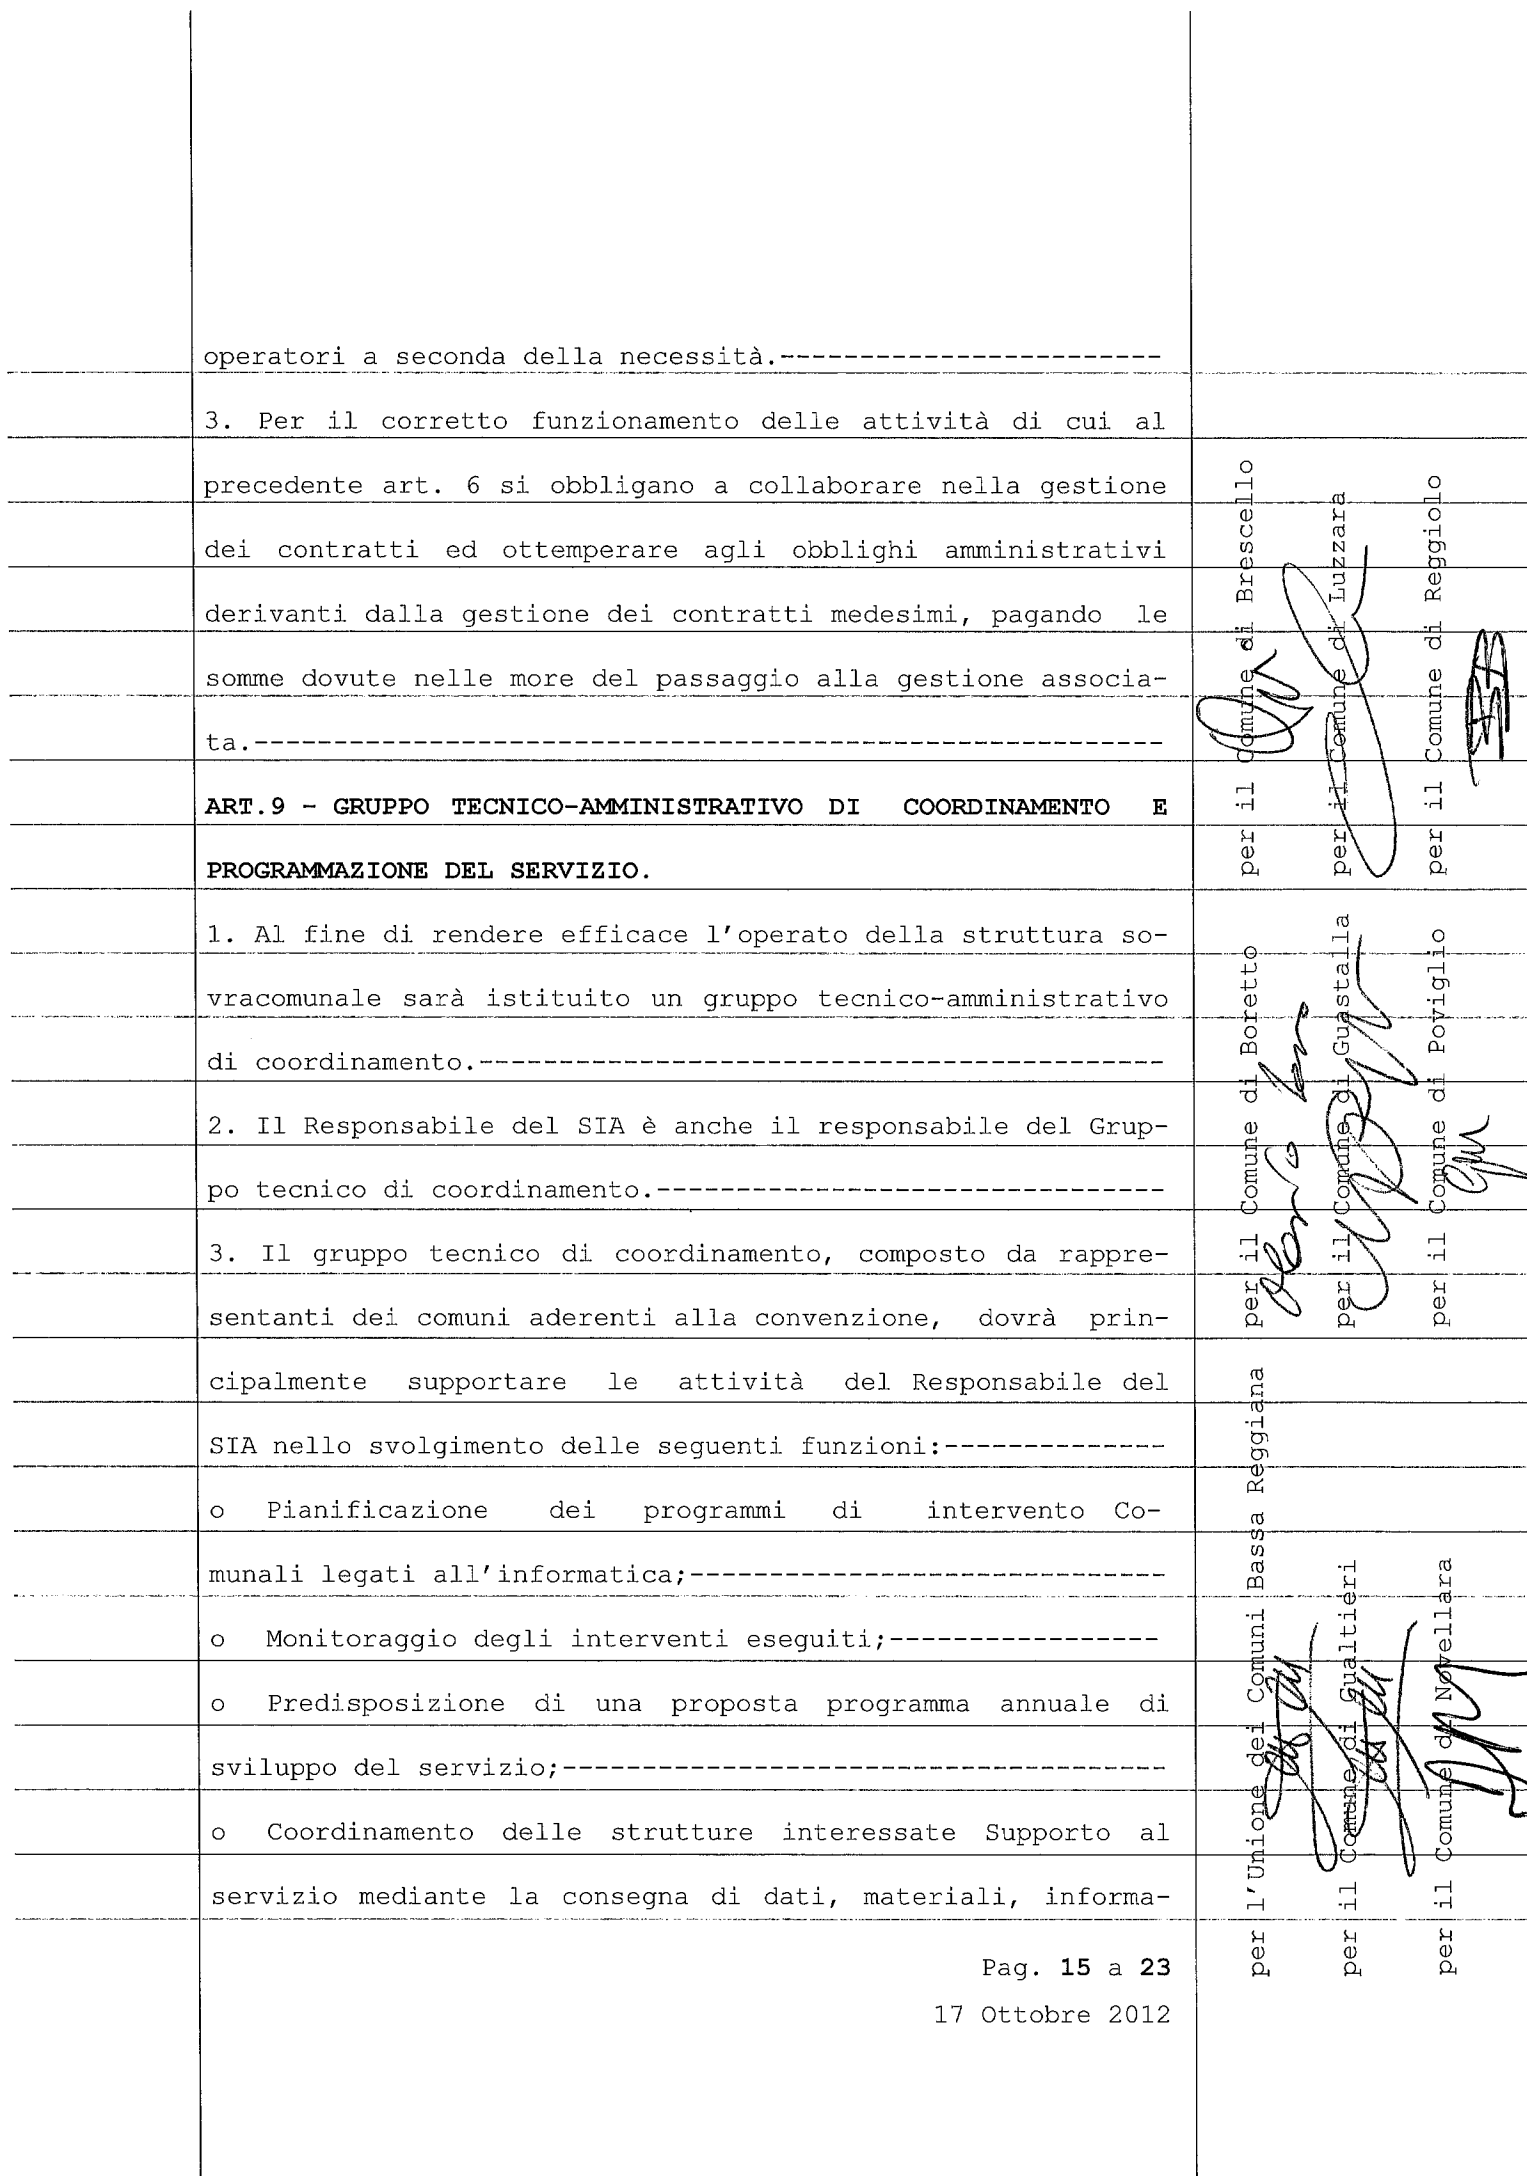 operatori a seconda della necessità.------------------------
3. Per il corretto funzionamento delle attività di cui al
precedente art. 6 si obbligano a collaborare nella gestione
dei contratti ed ottemperare agli obblighi amministrativi
derivanti dalla gestione dei contratti medesimi, pagando le
somme dovute nelle more del passaggio alla gestione associa-
ta.---------------------------------------------------------
ART.9 - GRUPPO TECNICO-AMMINISTRATIVO DI COORDINAMENTO E
PROGRAMMAZIONE DEL SERVIZIO.
1. Al fine di rendere efficace l'operato della struttura so-
vracomunale sarà istituito un gruppo tecnico-amministrativo
di coordinamento.-------------------------------------------
2. Il Responsabile del SIA è anche il responsabile del Grup-
po tecnico di coordinamento.--------------------------------
3. Il gruppo tecnico di coordinamento, composto da rappre-
sentanti dei comuni aderenti alla convenzione, dovrà prin-
cipalmente supportare le attività del Responsabile del
SIA nello svolgimento delle seguenti funzioni:--------------
o Pianificazione dei programmi di intervento Co-
munali legati all'informatica;------------------------------
o Monitoraggio degli interventi eseguiti;-----------------
o Predisposizione di una proposta programma annuale di
sviluppo del servizio;--------------------------------------
o Coordinamento delle strutture interessate Supporto al
servizio mediante la consegna di dati, materiali, informa-
Pag. 15 a 23
17 Ottobre 2012
per l'Unione dei Comuni Bassa Reggiana per il Comune di Boretto per il Comune di Brescello
per il Comune di Gualtieri per il Comune di Guastalla per il Comune di Luzzara
per il Comune di Novellara per il Comune di Poviglio per il Comune di Reggiolo